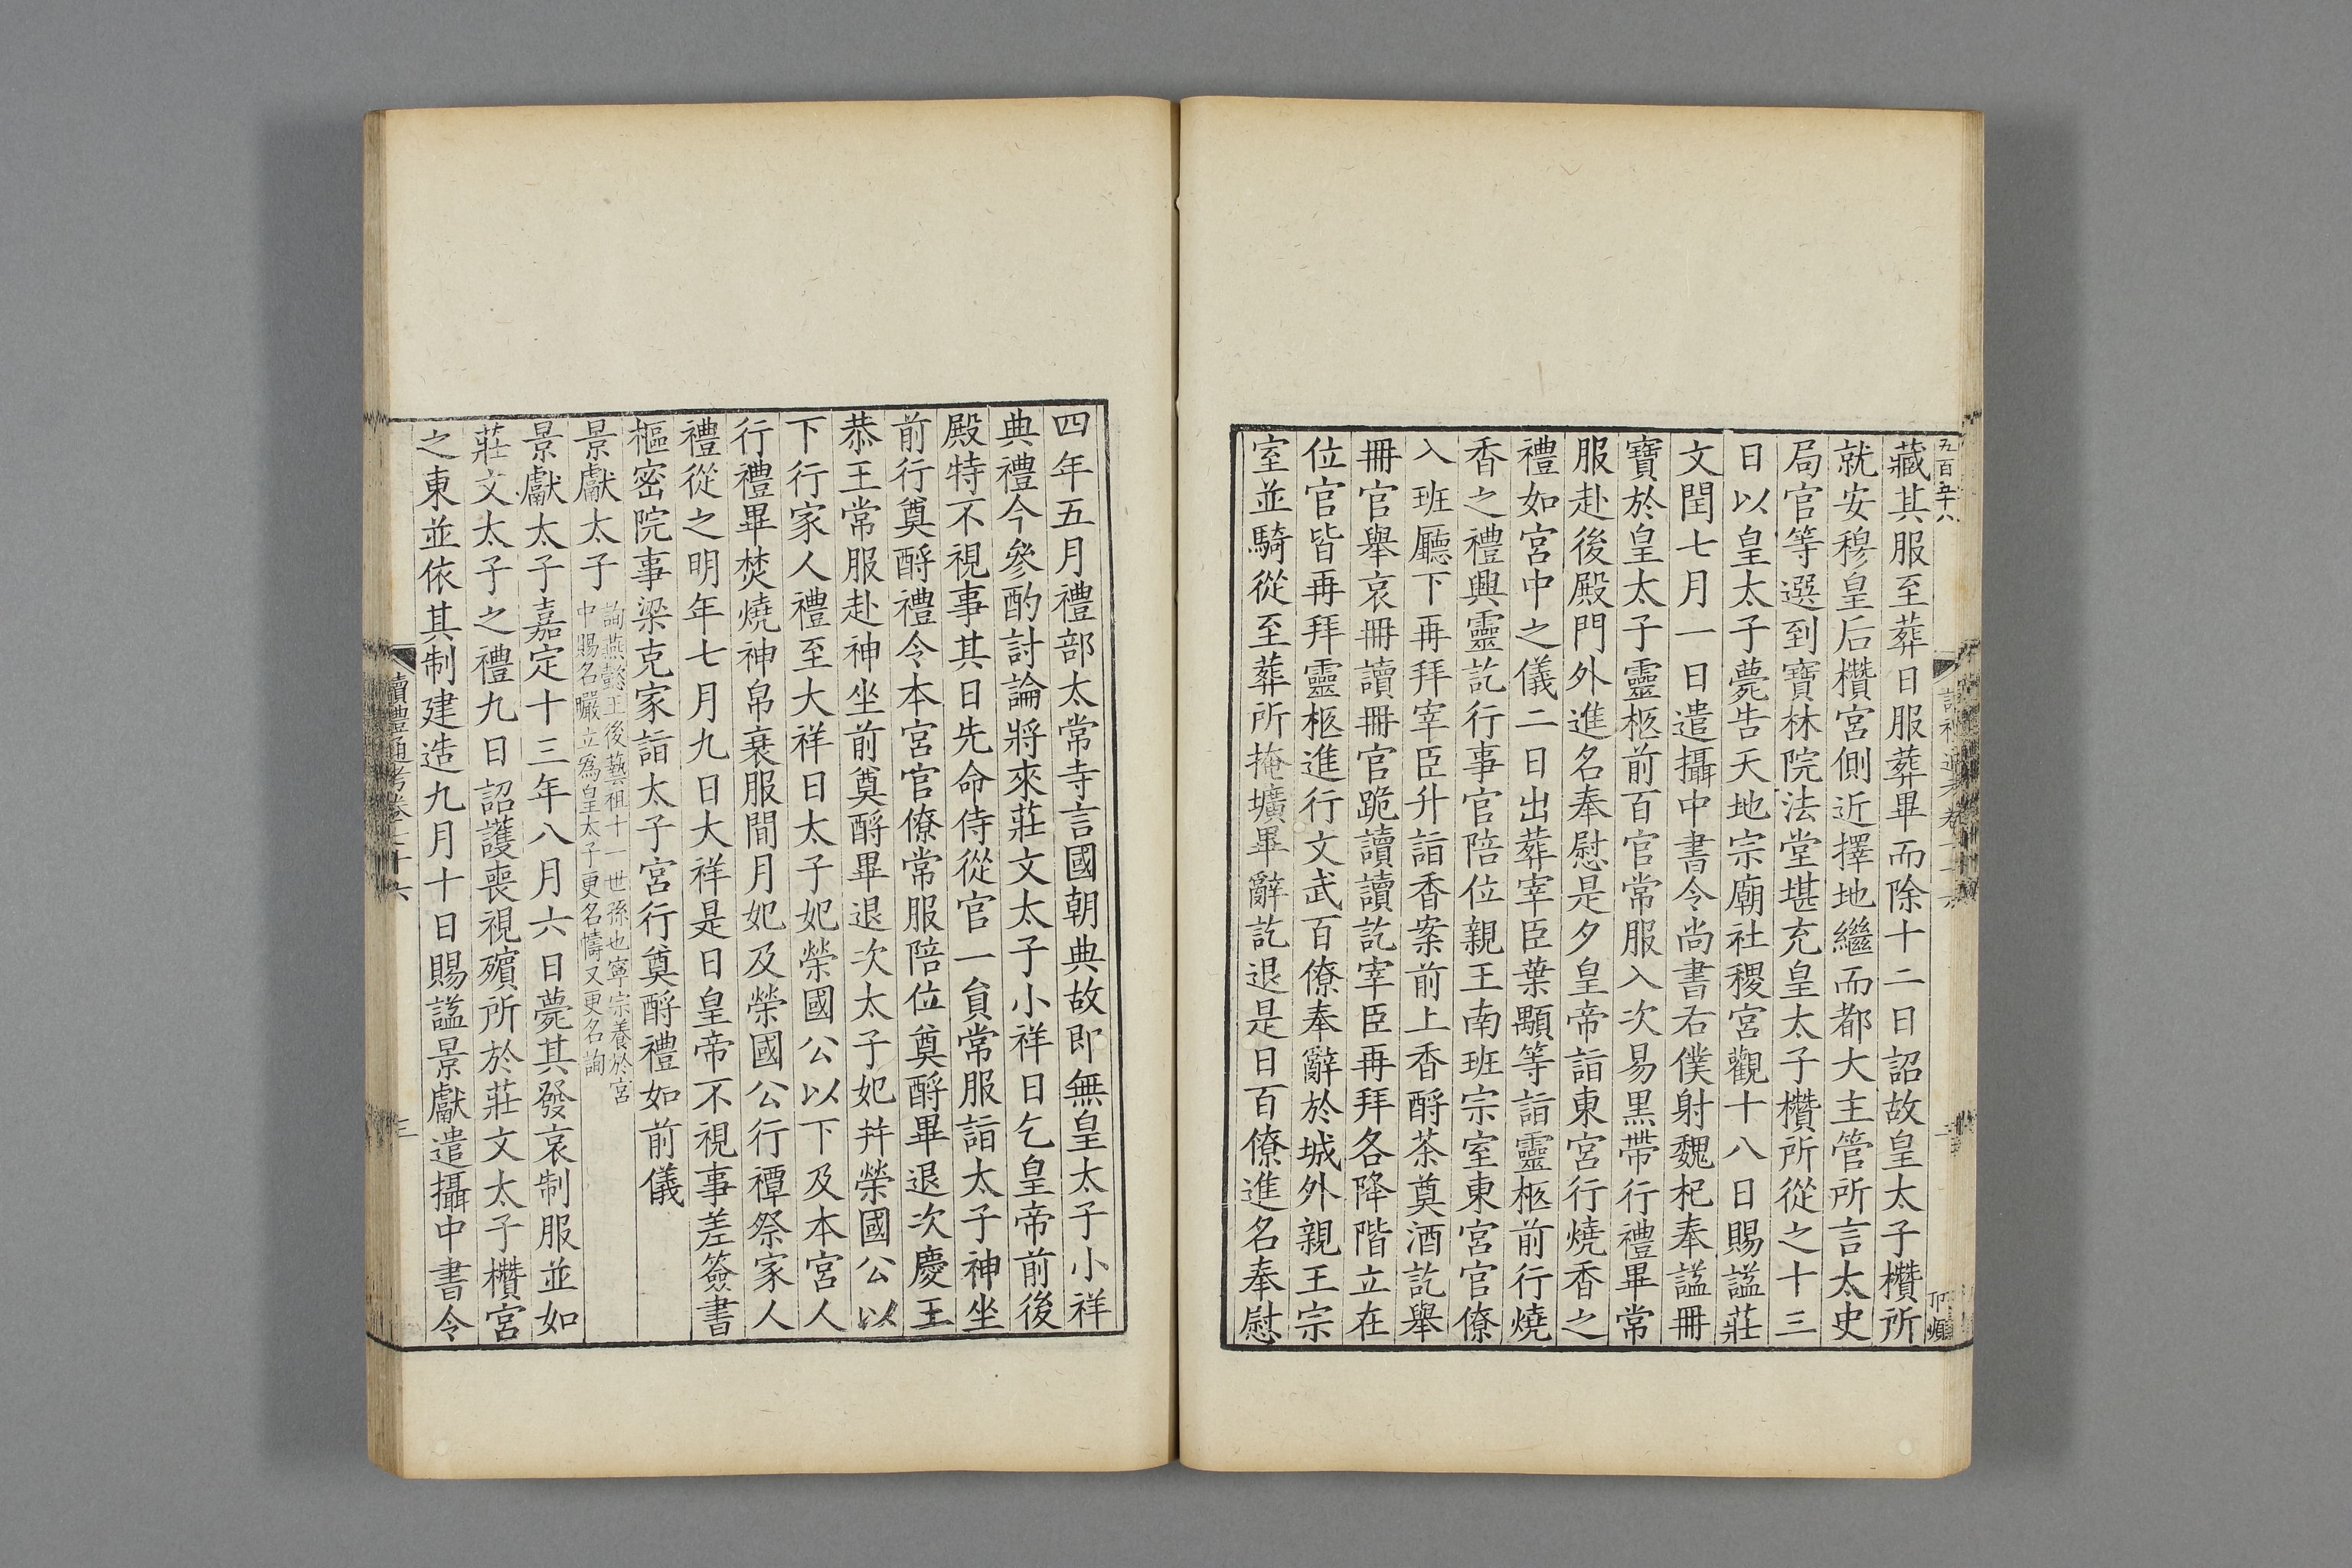 五百五十八
藏其服至葬日服葬畢而除十二日詔故皇太子欑所
就安穆皇后欑宮側近擇地繼而都大主管所言太史
局官等選到寶林院法堂堪充皇太子欑所從之十三
日以皇太子薨告天地宗廟社稷宮觀十八日賜諡莊
文閏七月一日遣攝中書令尚書右僕射魏杞奉諡冊
寶於皇太子靈柩前百官常服入次易黑帶行禮畢常
服赴後殿門外進名奉慰是夕皇帝詣東宮行燒香之
禮如宮中之儀二日出葬宰臣葉顒等詣靈柩前行燒
香之禮興靈訖行事官陪位親王南班宗室東宮官僚
入班廳下再拜宰臣升詣香案前上香酹茶奠酒訖舉
冊官舉哀冊讀冊官跪讀讀訖宰臣再拜各降階立在
位官皆再拜靈柩進行文武百僚奉辭於城外親王宗
室並騎從至葬所掩壙畢辭訖退是日百僚進名奉慰
四年五月禮部太常寺言國朝典故即無皇太子小祥
典禮今參酌討論將來莊文太子小祥日乞皇帝前後
殿特不視事其日先命侍從官一員常服詣太子神坐
前行奠酹禮令本宮官僚常服陪位奠酹畢退次慶王
恭王常服赴神坐前奠酹畢退次太子妃并榮國公以
下行家人禮至大祥日太子妃榮國公以下及本宮人
行禮畢焚燒神帛衰服間月妃及榮國公行禫祭家人
禮從之明年七月九日大祥是日皇帝不視事差簽書
樞密院事梁克家詣太子宮行奠酹禮如前儀
景獻太子詢燕懿王後藝祖十一世孫也寧宗養於宮
中賜名曮立為皇太子更名幬又更名詢
景獻太子嘉定十三年八月六日薨其發哀制服並如
莊文太子之禮九日詔護喪視殯所於莊文太子欑宮
之東並依其制建造九月十日賜諡景獻遣攝中書令
讀禮通考卷二十六
三